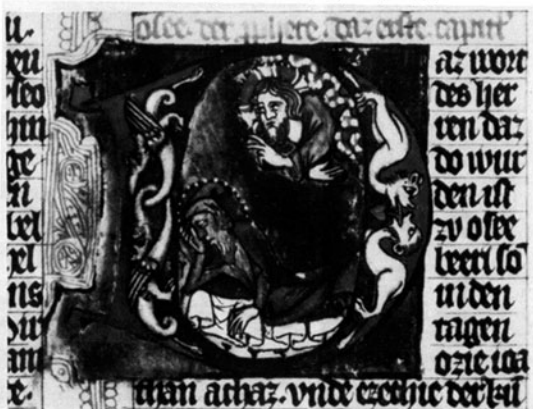 osee. der pphete. daz erste capitt
D az wort
des her
ren daz
do wur
den ist
zv osee
beeri so
in den
tagen
ozie ioa
than achaz. vnde ezechie der